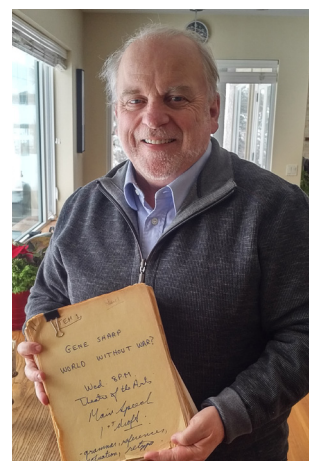 GENE SHARP
WORLD WITHOUT WAR?
Wed 8PM
Theatre of the Arts
Main Special
1st draft
grammar, references,